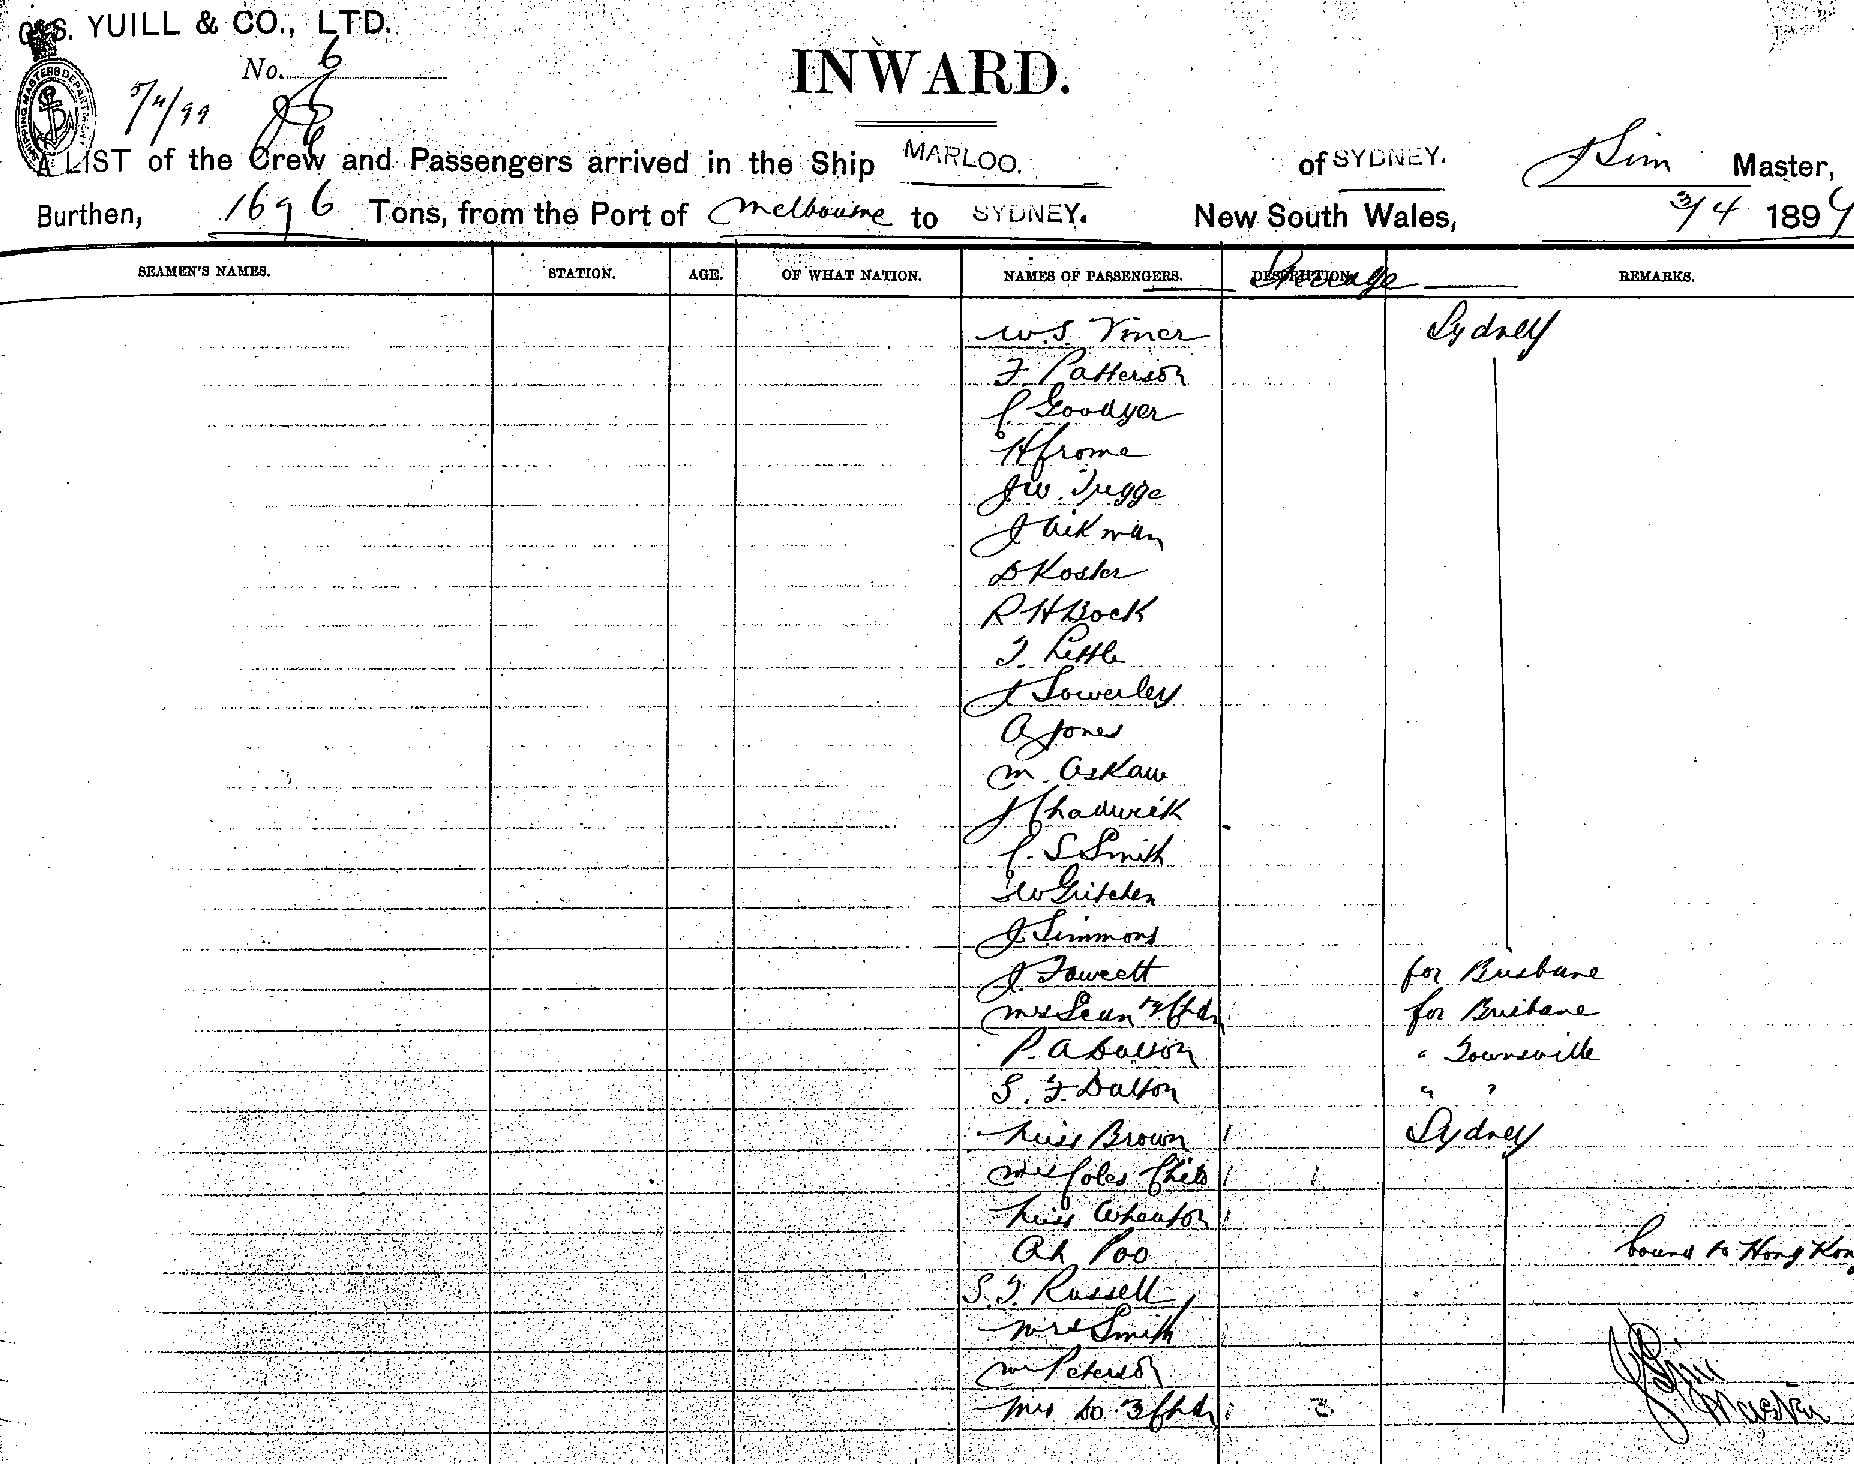 G.S. YUILL & CO., LTD.
No. 6
5/4/99
INWARD.
A LIST of the Crew and Passengers arrived in the Ship MARLOO. of SYDNEY. J Sim Master,
Burthen, 1696 Tons, from the Port of Melbourne to SYDNEY. New South Wales, 3/4 1899
SEAMEN'S NAMES. STATION. AGE. OF WHAT NATION. NAMES OF PASSENGERS. DESCRIPTION. REMARKS.
Steerage
W.S. Viner Sydney
F Patterson
C Goodyer
H Frome
J W. Tregge
J Aikman
D Koster
R H Bock
T. Little
J Sowerley
A Jones
M. Askaw
J Chadwick
C. S Smith
W Gritchen
J. Simmons
J. Fawcett for Brisbane
Mrs for Brisbane
P. A Dalton " Townsville
S. F. Dalton " "
Miss Brown 1 Sydney
Mrs Coles Child 1 1
Miss Wheaton 1
Ah Poo bound to Hong Kong
S. F. Russell
Mrs Smith
Mr Peterson
Mrs Do. 3 Chdn 1 3
J Sim
Master